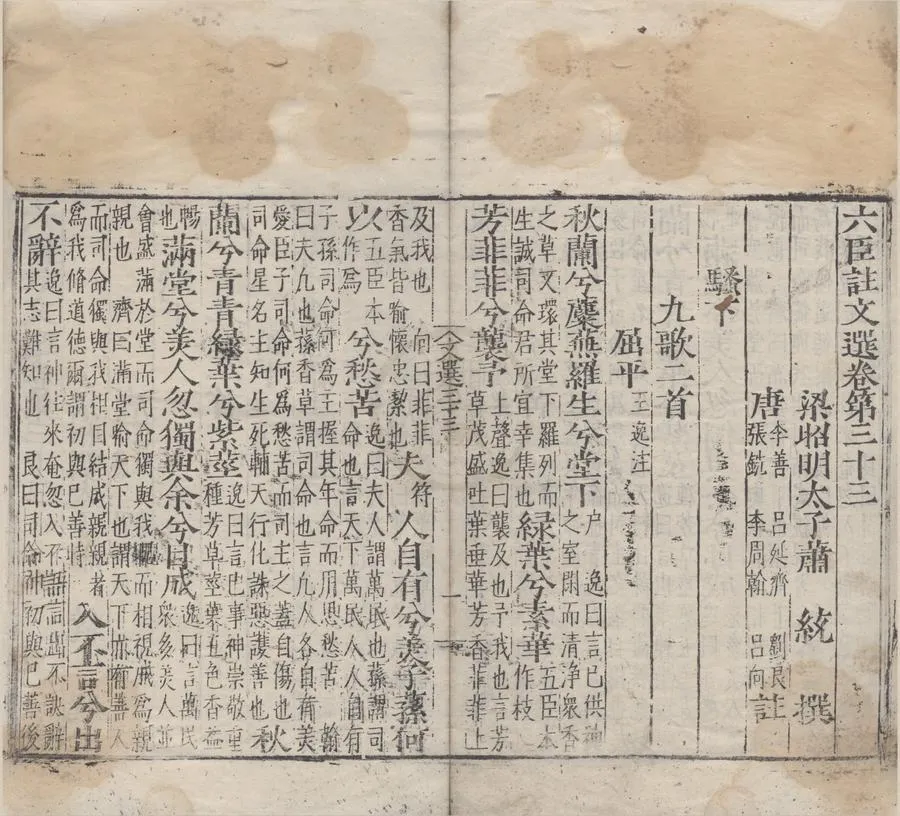 六臣註文選卷第三十三
梁昭明太子蕭 統 撰
唐 李善 呂延濟 劉良 張銑 李周翰 呂向 註
騷下
九歌二首
屈平 王逸注
秋蘭兮麋蕪羅生兮堂下 逸曰言己供神之室閑而清浄衆香
之草又環其堂下羅列而生誠司命君所宜幸集也緑葉兮素華 五臣本作枝
芳菲菲兮襲予 上聲逸曰襲及也予我也言芳草茂盛吐葉垂華芳香菲菲上
文選三十三 一
及我也 向曰菲菲香氣皆喻懷忠絜也夫 符 人自有兮美子蓀何
以 五臣本作為 兮愁苦 逸曰夫人謂萬民也蓀謂司命也言天下萬民人人自有
子孫司命何為主握其年命而用思愁苦 翰曰夫九也蓀香草謂司命也言九人各自有美
愛臣子司命何為愁苦而司主之蓋自傷也司命星名主知生死輔天行化誅惡護善也秋
蘭兮青青緑葉兮紫莖 逸曰言己事神崇敬重種芳草莖葉五色香益
暢也滿堂兮美人忽獨與余兮目成 逸曰言萬民衆多美人並
會盛滿於堂而司命獨與我睨而相視成為親親也 濟曰滿堂喻天下也謂天下亦有善人
而司命獨與我相目結成親親者為我脩道德爾謂初與己善時 入不言兮出
不辭 逸曰言神往來奄忽入不語言出不訣辭其志難知也 良曰司命初與己善後